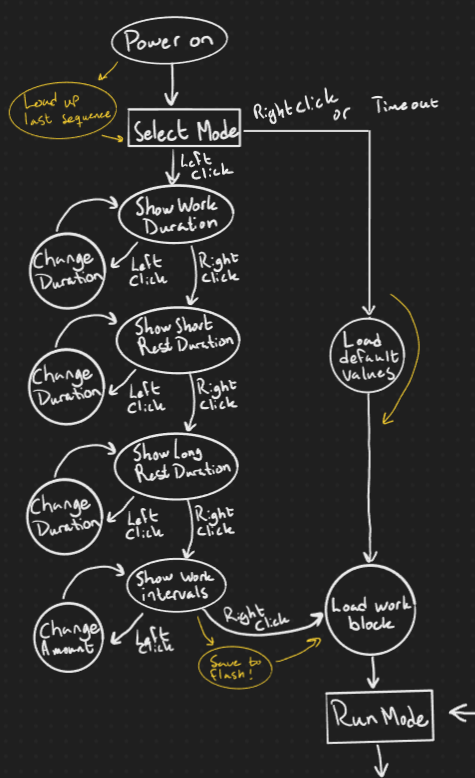 Power on
Load up
last sequence
Select Mode
Right Click or Timeout
Left
Click
Show Work
Duration
Change
Duration
Left
Click
Right
Click
Show Short
Rest Duration
Load
default
values
Change
Duration
Left
Click
Right
Click
Show Long
Rest Duration
Change
Duration
Left
Click
Right
Click
Show Work
intervals
Change
Amount
Left
Click
Right
Click
Load work
block
Save to
flash!
Run Mode